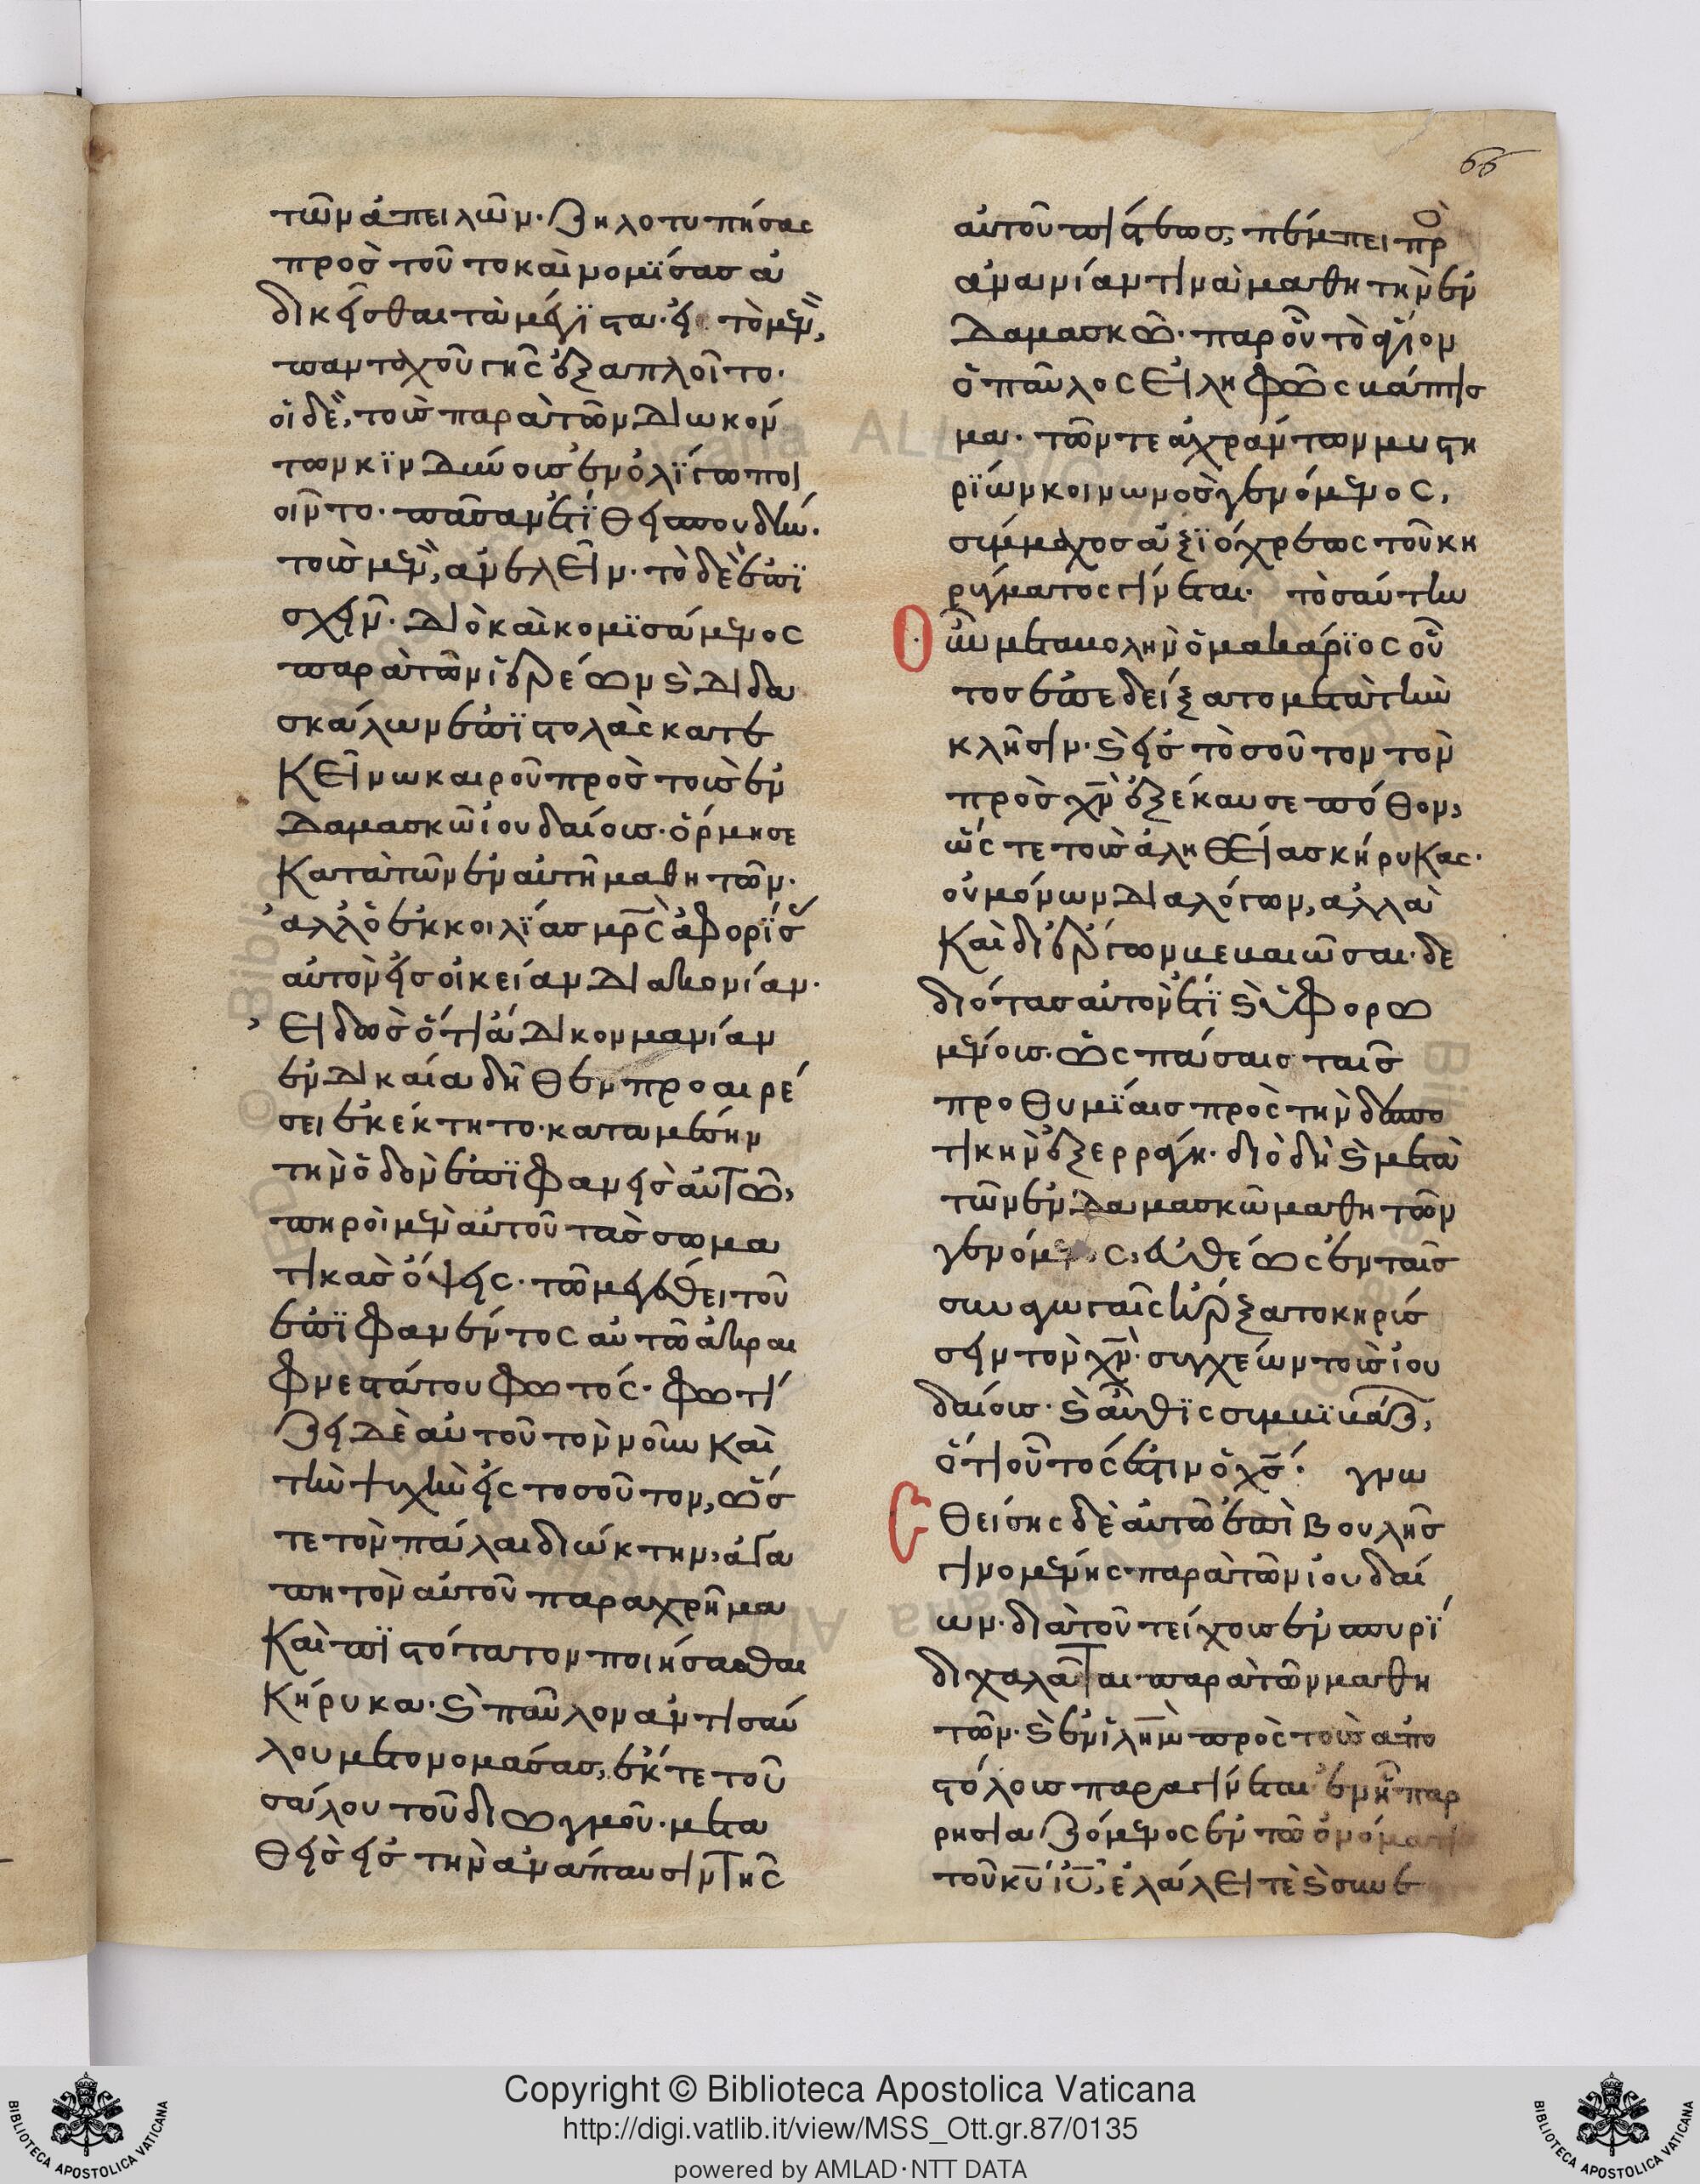 66
τῶν ἀπειλῶν· ζηλοτυπήσας
πρὸς τοῦτο καὶ νομίσας ἀ
δικεῖσθαι τὰ μέγιστα· εἰ τὸ μὲν,
πανταχοῦ γῆς ἐξαπλοῖτο·
οἱ δὲ, τοὺς παρὰ τῶν διωκόν
των κινδύνους ἐν ὀλίγω ποι
οῖντο· πᾶσαν ἐτίθει σπουδὴν·
τοὺς μὲν, ἀνελεῖν· τὸ δὲ ἐπι
σχεῖν· διὸ καὶ κομισάμενος
παρὰ τῶν ἱερέων καὶ διδα
σκάλων ἐπιστολὰς κατ' ἐ
κεῖνω καιροῦ πρὸς τοὺς ἐν
Δαμασκῶ ἰουδαίους· ὅρμησε
κατὰ τῶν ἐν αὐτῆ μαθητῶν·
ἀλλ' ὁ ἐκ κοιλίας μρς ἀφορίσας
αὐτὸν εἰς οἰκείαν διακονίαν·
εἰδὼς ὅτι ἄδικον μανίαν
ἐν δικαία δῆθεν προαιρέ
σει ἐκέκτητο· κατὰ μέσην
τὴν ὁδὸν ἐπιφανεὶς αὐτῶ,
πηροῖ μὲν αὐτοῦ τὰς σωμα
τικὰς ὄψεις· τῶ μεγέθει τοῦ
ἐπιφανέντος αὐτῶ ἀκραι
φνεστάτου φωτός· φωτί
ζει δὲ αὐτοῦ τὸν νοῦν καὶ
τὴν ψυχὴν εἰς τοσοῦτον, ὥσ
τε τὸν πάλαι διώκτην, ἀγα
πητὸν αὐτοῦ παραχρῆμα
καὶ πιστότατον ποιήσασθαι
κήρυκα· καὶ παῦλον ἀντὶ σαύ
λου μετονομάσας, ἔκ τε τοῦ
σάλου τοῦ διωγμοῦ· μετα
θεὶς εἰς τὴν ἀνάπαυσιν τῆς
αὐτοῦ πίστεως, πέμπει πρὸς
ἀνανίαν τινὰ μαθητὴν ἐν
Δαμασκῶ· παρ' οὗ τὸ ἅγιον
ὁ παῦλος εἰληφὼς βάπτισ
μα· τῶν τε ἀχράντων μυστη
ρίων κοινωνὸς γενόμενος,
σύμμαχος ἀξιόχρεως τοῦ κη
ρύγματος γίνεται· τοσαύτην
οὖν μεταβολὴν ὁ μακάριος οὗ
τος ἐπεδείξατο μετὰ τὴν
κλῆσιν· καὶ εἰς τοσοῦτον τὸν
πρὸς χν ἐξέκαυσε πόθον,
ὥς τε τοὺς ἀληθείας κήρυκας·
οὐ μόνων διαλόγων, ἀλλὰ
καὶ δι' ἔργων βεβαιῶσαι· δε
διότας αὐτὸν ἔτι καὶ ὑφορω
μένους· ὡς πάσαις ταῖς
προθυμίαις πρὸς τὴν δεσπο
τικὴν ἐξερράγη· διὸ δὴ καὶ μετὰ
τῶν ἐν Δαμασκῶ μαθητῶν
γενόμενος, εὐθέως ἐν ταῖς
συναγωγαῖς ἤρξατο κηρύσ
σειν τὸν χν· συγχέων τοὺς ἰου
δαίους· καὶ αὖθις συμβιβάζων,
ὅτι οὗτός ἐστιν ὁ χς· γνω
σθείσης δὲ αὐτῶ ἐπιβουλῆς
γινομένης παρὰ τῶν ἰουδαί
ων· διὰ τοῦ τείχους ἐν σπυρί
δι χαλᾶται παρὰ τῶν μαθη
τῶν· καὶ ἐν ἱλημ πρὸς τοὺς ἀπο
στόλους παραγίνεται· ἐν ἧ παρ
ρησιαζόμενος ἐν τῶ ὀνόματι
τοῦ κυ ιυ, ἐλάλει τὲ καὶ συνε
Copyright © Biblioteca Apostolica Vaticana
http://digi.vatlib.it/view/MSS_Ott.gr.87/0135
powered by AMLAD·NTT DATA
BIBLIOTECA APOSTOLICA VATICANA
BIBLIOTECA APOSTOLICA VATICANA